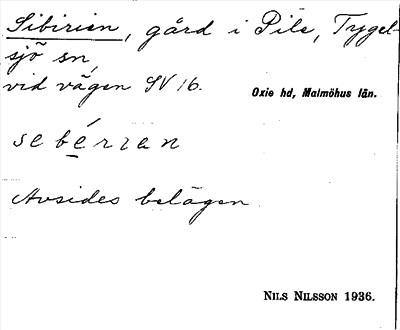 Sibirien, gård i Pile, Tygel-
sjö sn,
vid vägen SV 16.
Oxie hd, Malmöhus län.
sebérɩan
Avsides belägen.
NILS NILSSON 1936.